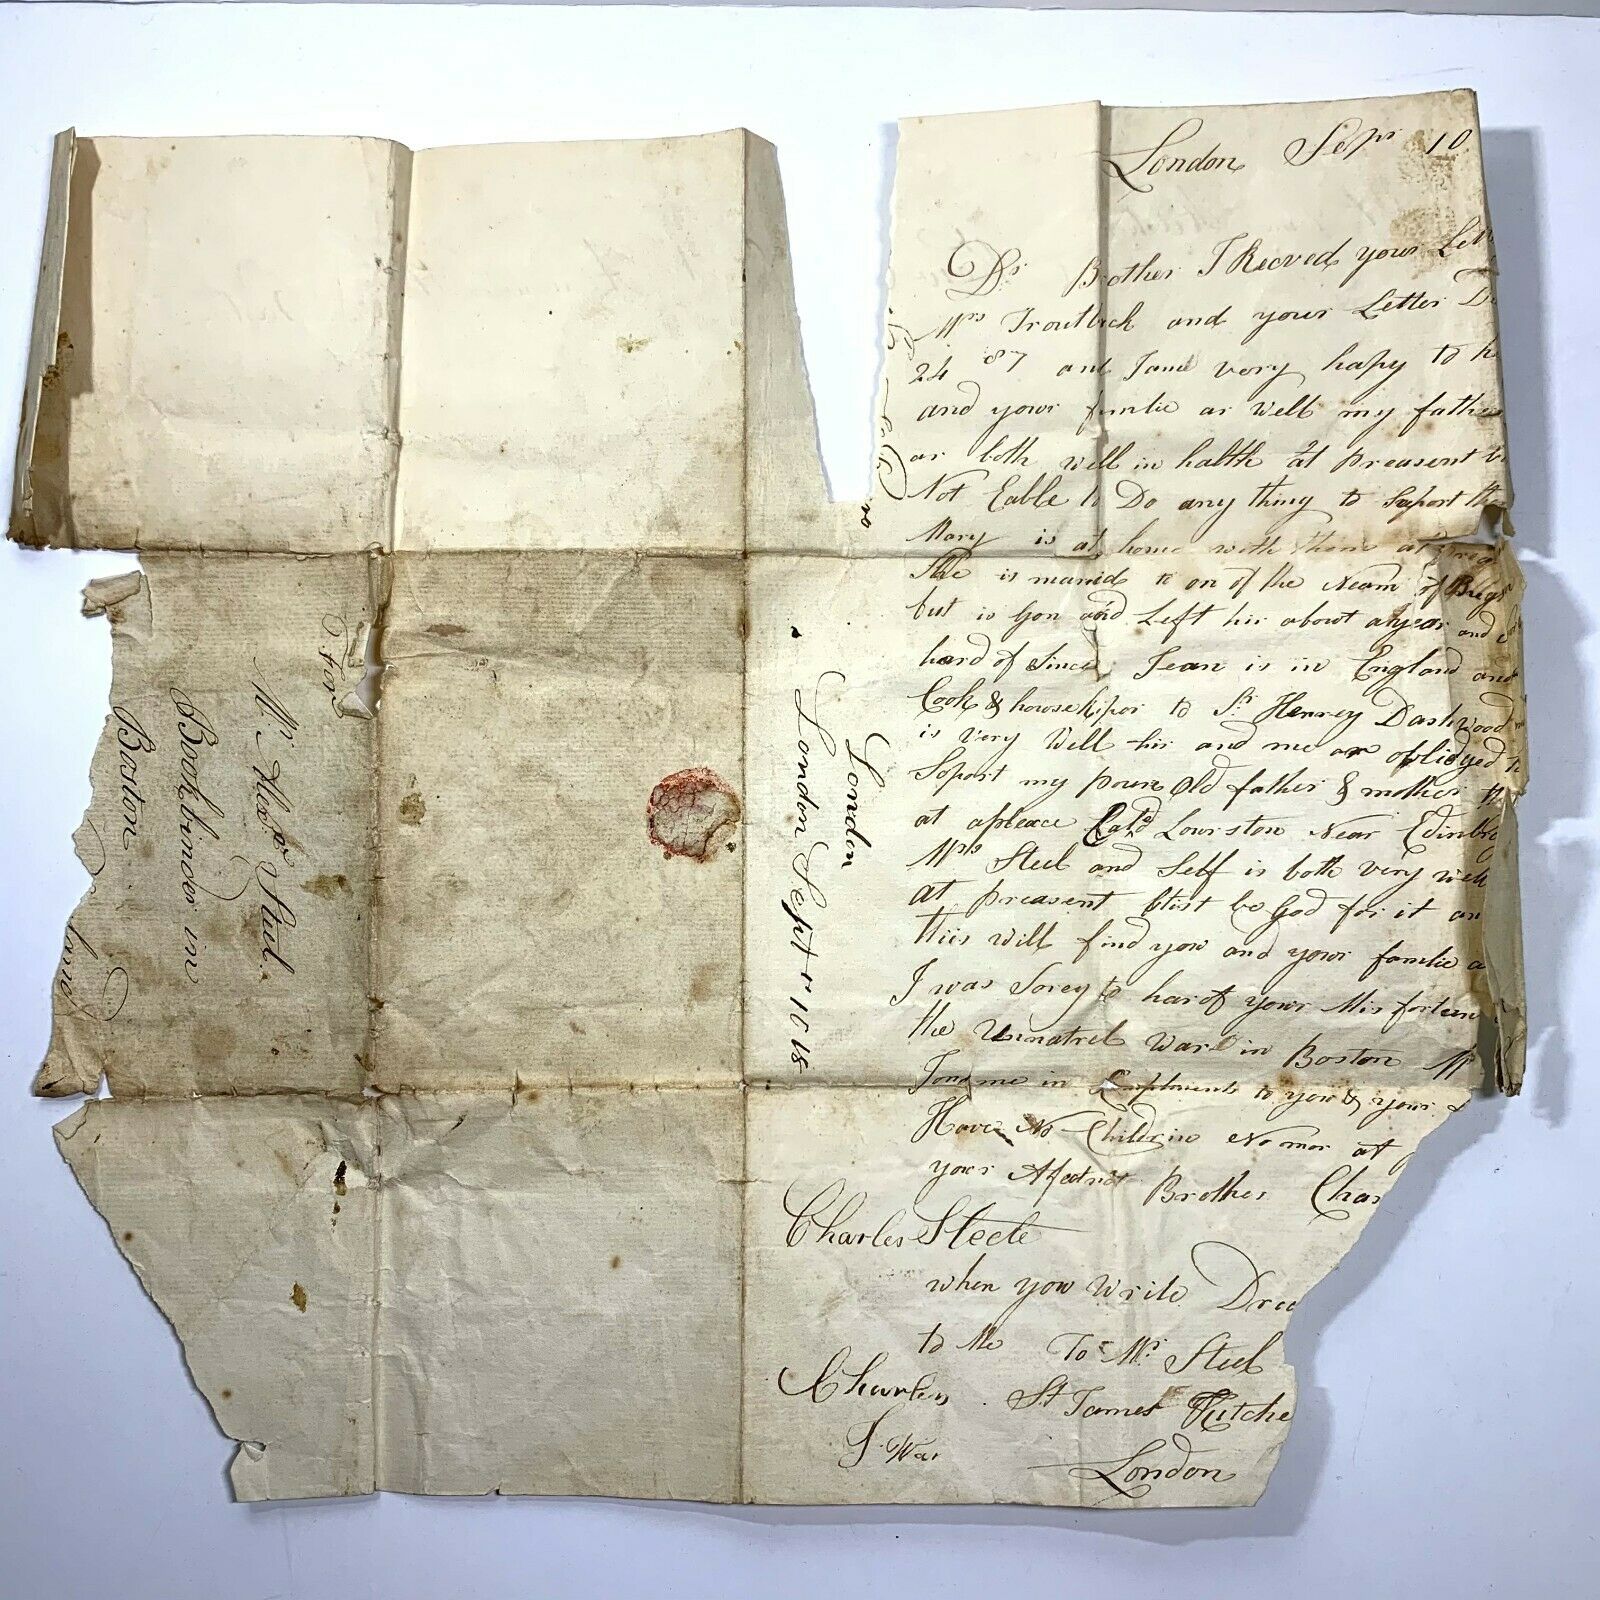 London Sepr 10
Dr Brother I Recved your Lett
Mrs Troutbeck and your Letter D
24 87 and I ame very hapy to h
and your famlie ar well my fathe
ar both well in halth at preasent b
Not Eable to Do any thing to Suport the
Mary is at home with them at prea
She is maried to on of the Neam of
but is Gon and Left hir about a year and
hard of Since Jean is in England and
Cook & howsekiper to Sr Henrey Dashwood
is very Well hir and me ar oblidyed to
Soport my poure Old father & mother th
at a pleace Cald Lowrston Near Edinbr
Mrs Steel and Self is both very well
at preasent blist be God for it an
thiis will find you and your famlie a
I was Sorey to har of your Misfortun
the Unnatrel War in Boston M
Jons me in Complments to you & your
Have No Children No mor at
your Afectnet Brother Char
Charles Steele
when you write Drec
to Me To Mr Steel
Charles St James Kitche
S War
London
London
London Septr 10
For
Mr Steel
Bookbinder in
Boston